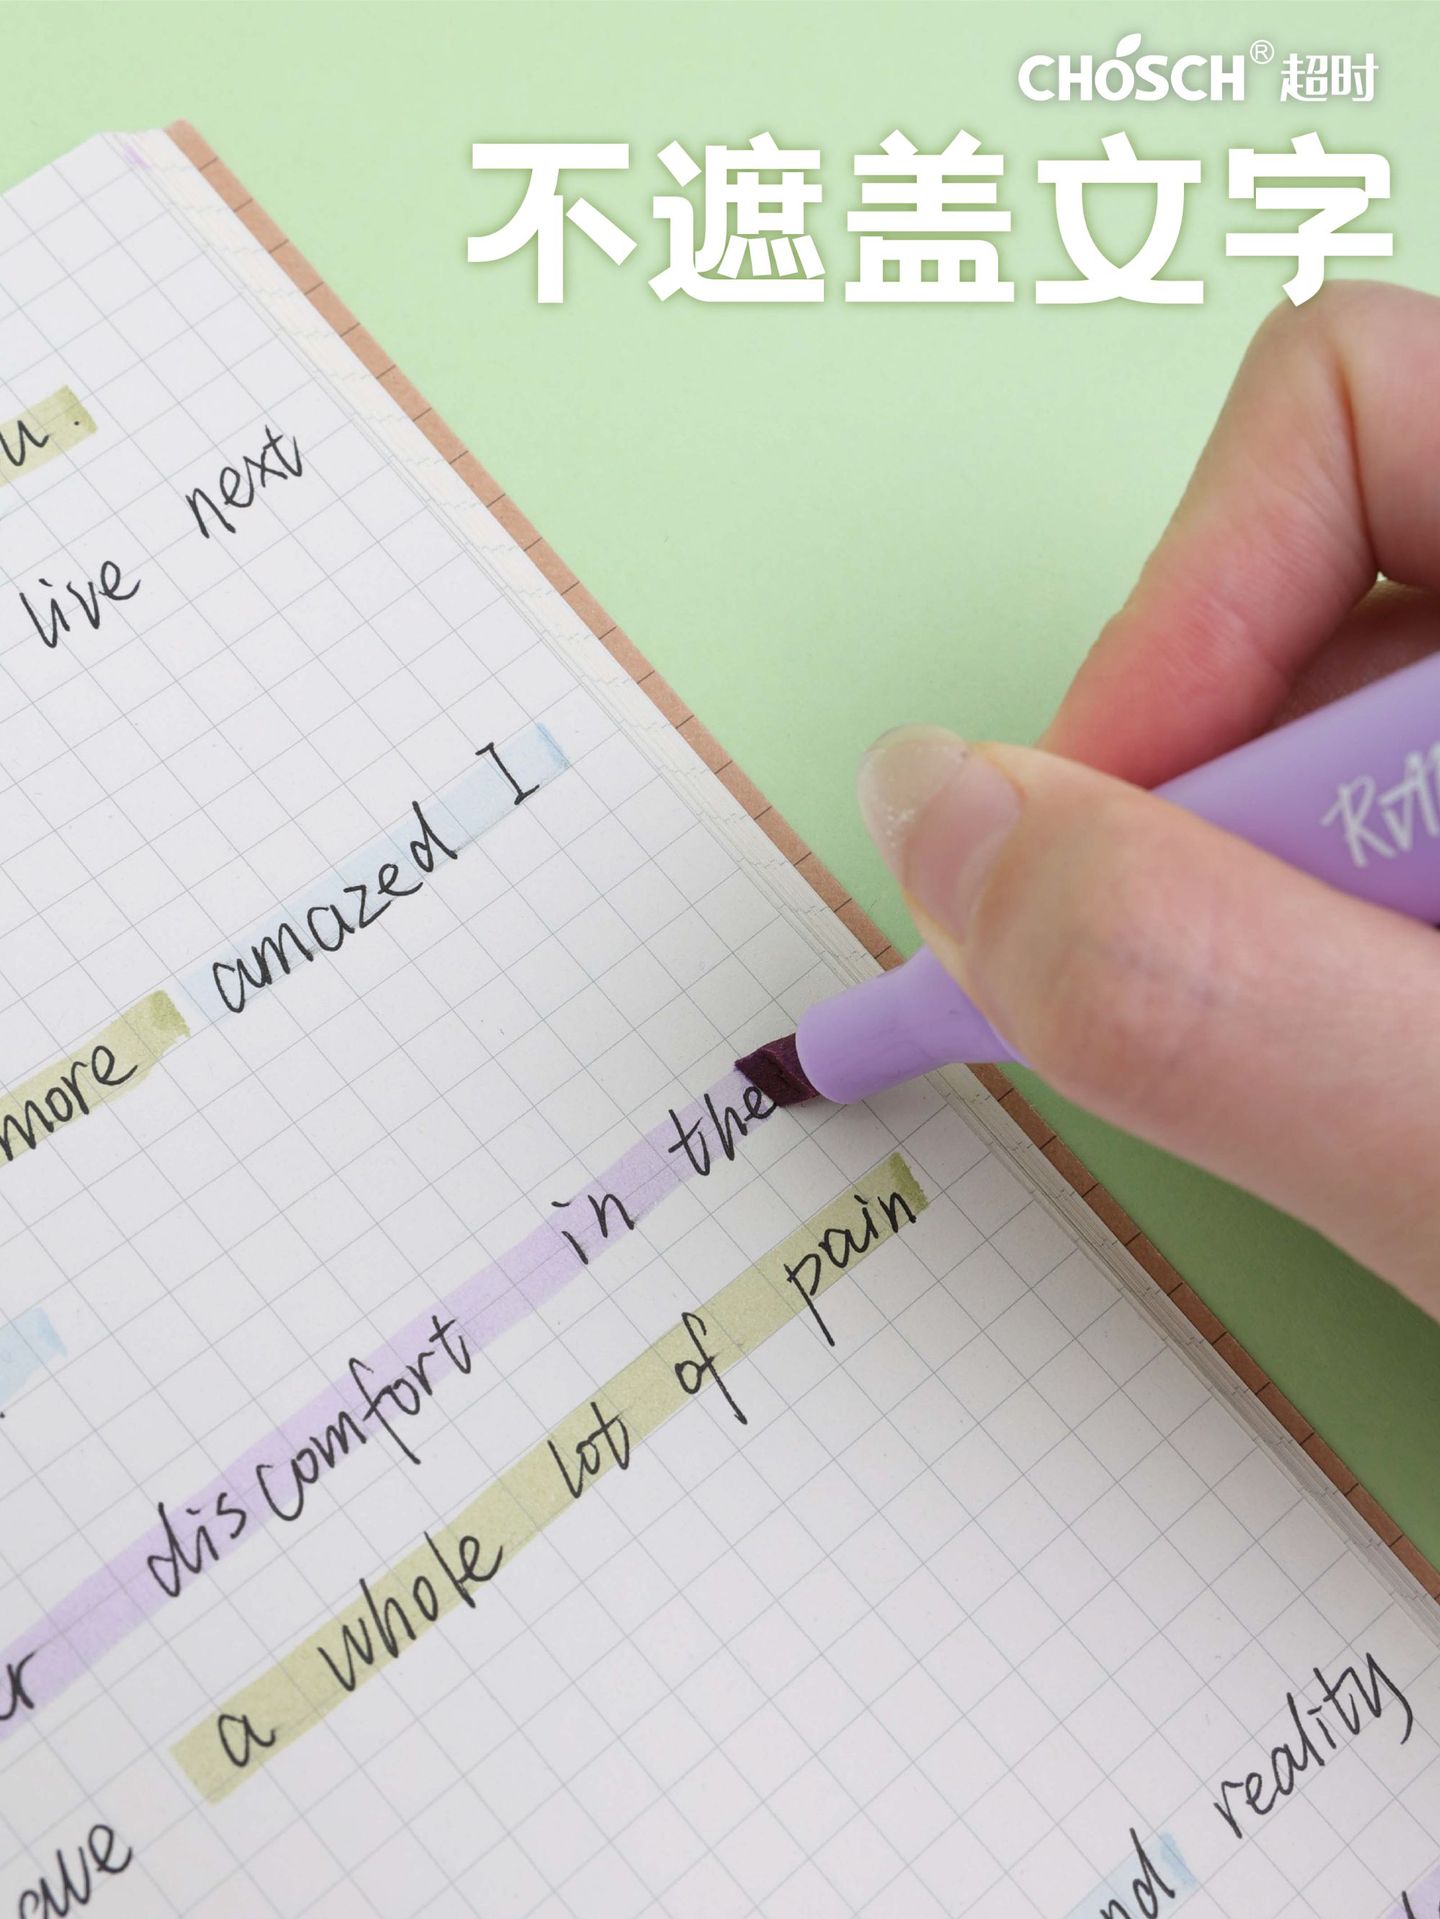 CHOSCH® 超时
不遮盖文字
u.
live next
amazed I
more
discomfort in the
a whole lot of pain
reality